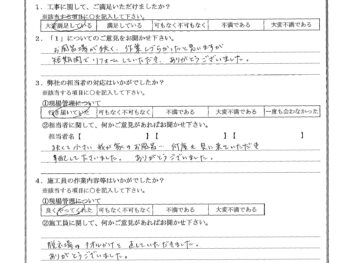 1．工事に関して、ご満足いただけましたか？
※該当する項目に○を記入して下さい。
大変満足している 満足している 可もなく不可もなく 不満である 大変不満である
2．「1」についてのご意見をお聞かせ下さい。
お風呂場が狭く、作業しづらかったと思いますが
短期間でリフォームしていただき、ありがとうございました。
3．弊社の担当者の対応はいかがでしたか？
※該当する項目に○を記入して下さい。
①現場管理について
行き届いていた 可もなく不可もなく 不満である 大変不満である 一度も会わなかった
②担当者に関して、何かご意見があればお聞かせ下さい。
担当者名【 】【 】【 】
小さい我が家のお風呂 何度も見に来ていただき
下さいました。ありがとうございました。
4．施工員の作業内容等はいかがでしたか？
※該当する項目に○を記入して下さい。
①現場管理について
良くやってくれた 可もなく不可もなく 不満である 大変不満である
②施工員に関して、何かご意見があればお聞かせ下さい。
脱衣場のタオルかけも直していただきました。
ありがとうございました。